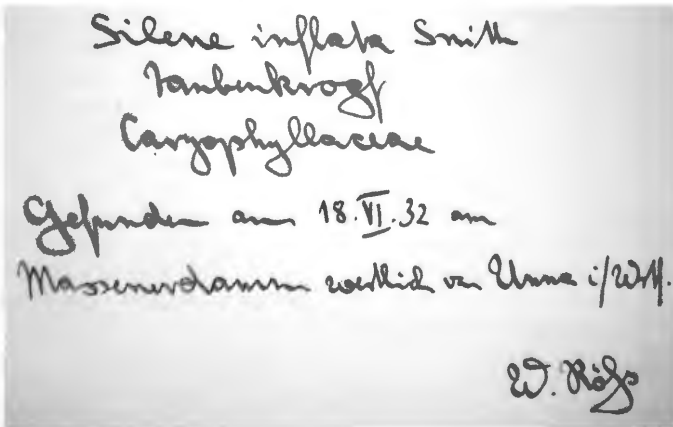 Silene inflata Smith
Taubenkropf
Caryophyllaceae
Gefunden am 18.VI.32 am
Massenerdamm westlich von Unna i/Wstf.
W. Röhs